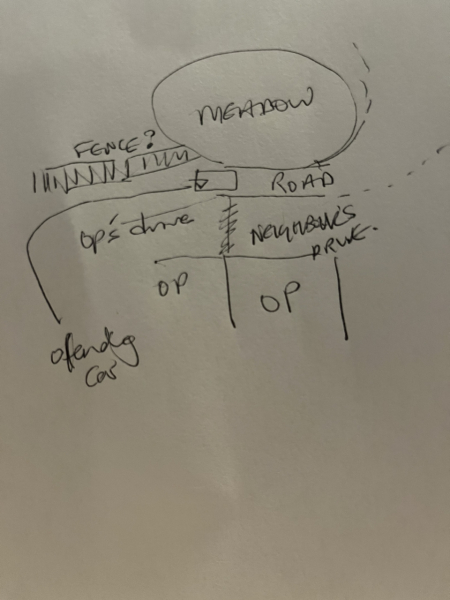 MEADOW
FENCE?
ROAD
OP's drive
NEIGHBOURS
DRIVE.
OP
OP
offending
car